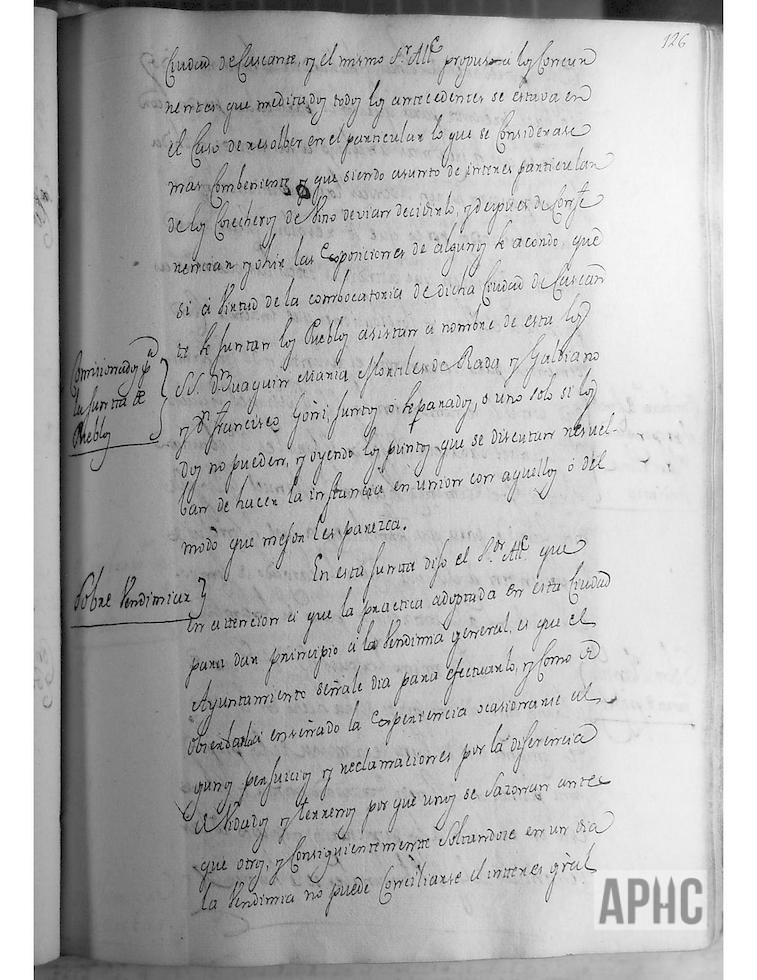 126
Ciudad de Cascante, y el mismo Sr. Alc.e propuso a los Concur
rentes que meditados todos los antecedentes se estava en
el Caso de resolber en el particular lo que se Considerase
mas Combeniente y que siendo asunto de interes particular
de los Cosecheros de Vino devian decidirlo, y despues de Confe
renciar y ohir las Esposiciones de algunos se acordo, que
si a Virtud de la combocatoria de dicha Ciudad de Cascan
te se juntan los Pueblos asistan a nombre de esta los
Comisionados p.a
la Junta de
Pueblos
SS. Dn. Juaquin Maria Montiles de Rada y Galdiano
y Dn. Francisco Goñi, juntos o separados, o uno solo si los
dos no pueden, y oyendo los puntos que se discutan resuel-
ban de hacer la instancia en union con aquellos o del
modo que mejor les parezca.
Sobre Vendimiar
En esta Junta dijo el S.or Alc.e que
en atencion a que la practica adoptada en esta Ciudad
para dar principio a la Vendimia general, es que el
Ayuntamiento señale dia para efectuarlo, y Como
enseñado la Esperiencia ocasionarse al
gunos perjuicios y reclamaciones por la diferencia
de Vidados y terrenos por que unos se sazonan antes
que otros, y Consiguientemente Soltandose en un dia
la Vendimia no puede Conciliarse el interes gral
APHC